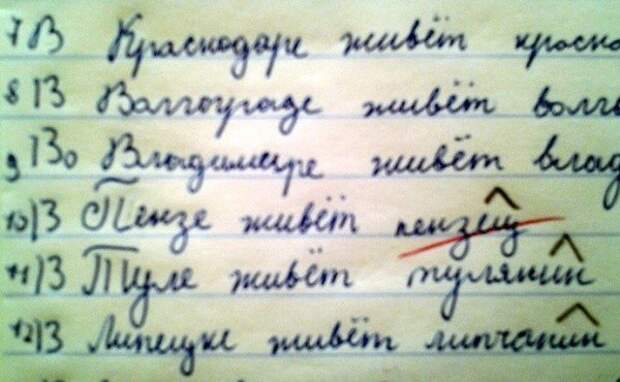 7) В Краснодаре живёт красно
8) В Волгограде живёт волгв
9) Во Владимире живёт влад
10) В Пензе живёт пензещ
11) В Туле живёт тулянин
12) В Липецке живёт липчанин